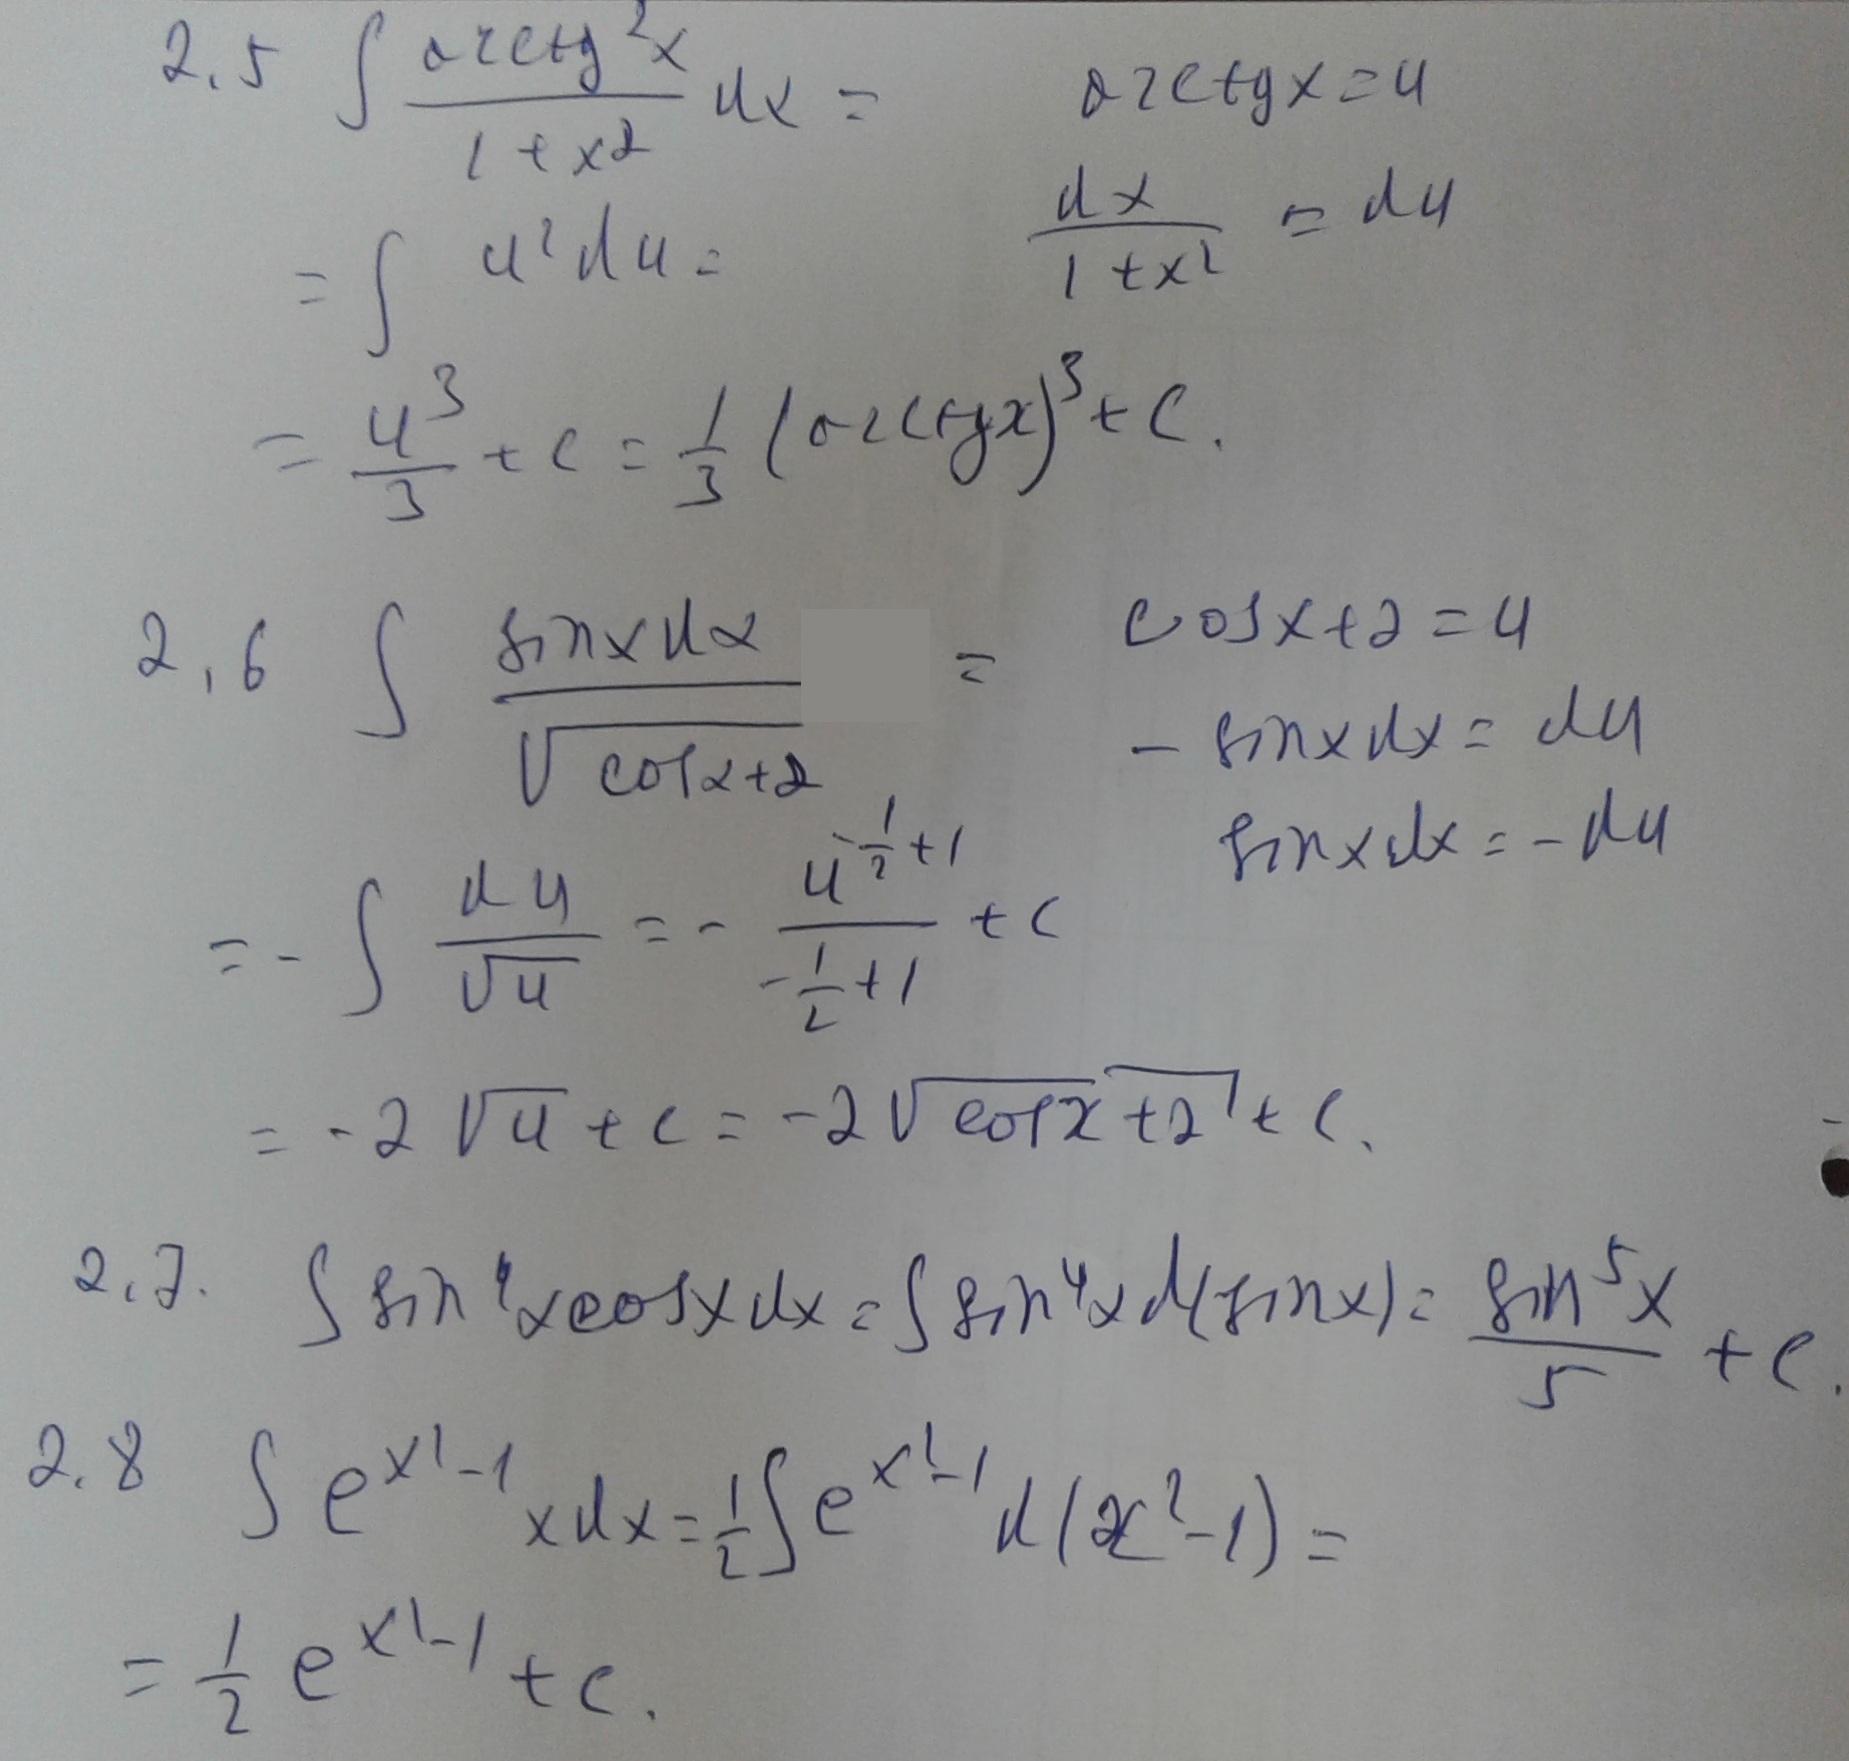 2.5 ∫ arctg²x / 1+x² dx = arctgx=u
= ∫ u² du = dx / 1+x² = du
= u³/3 + c = 1/3 (arctgx)³ + C.
2.6 ∫ sinxdx / √cosx+2 = cosx+2=u
- sinxdx = du
sinxdx = -du
= - ∫ du/√u = - u^(-1/2+1) / -1/2+1 + c
= -2√u + c = -2√cosx+2 + c.
2.7. ∫ sin⁴xcosxdx = ∫ sin⁴x d(sinx) = sin⁵x/5 + c.
2.8 ∫ e^(x²-1) xdx = 1/2 ∫ e^(x²-1) d(x²-1) =
= 1/2 e^(x²-1) + c.